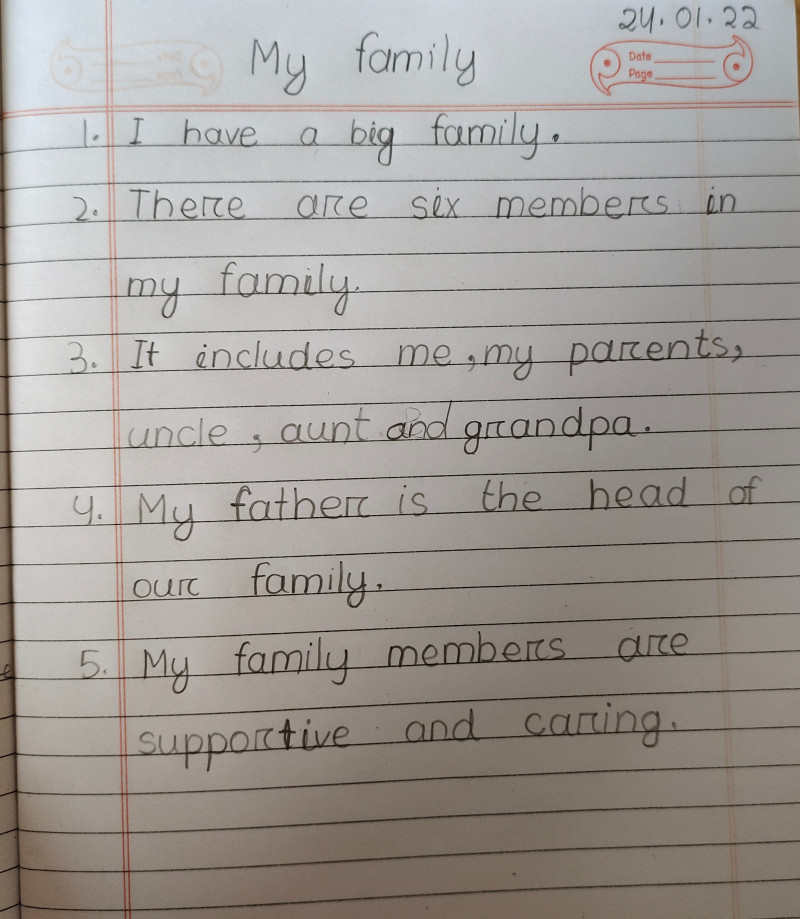 24.01.22
My family
Date
Page
1. I have a big family.
2. There are six members in
my family.
3. It includes me, my parents,
uncle, aunt and grandpa.
4. My father is the head of
our family.
5. My family members are
supportive and caring.